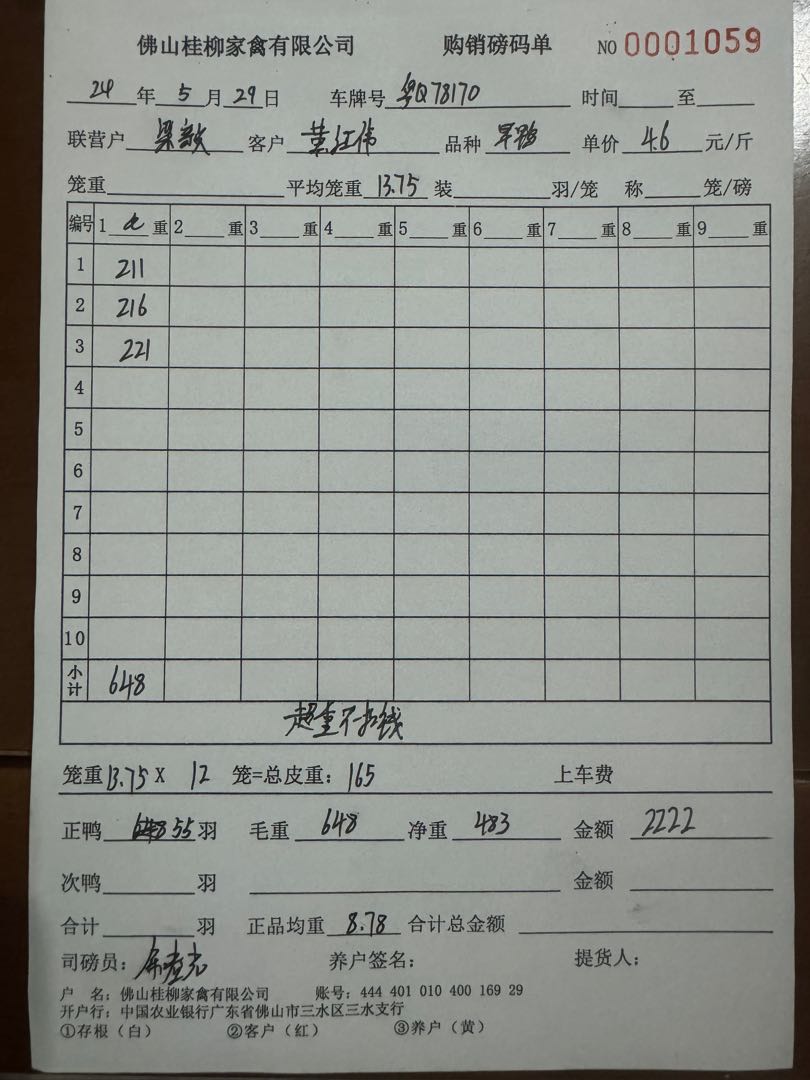 佛山桂柳家禽有限公司 购销磅码单 NO 0001059
24 年 5 月 29 日 车牌号 粤Q78170 时间 至
联营户 梁 客户 黄江伟 品种 单价 4.6 元/斤
笼重 平均笼重 13.75 装 羽/笼 称 笼/磅
编号 1 重 2 重 3 重 4 重 5 重 6 重 7 重 8 重 9 重
1 211
2 216
3 221
4
5
6
7
8
9
10
小计 648
超重不扣钱
笼重 13.75 X 12 笼=总皮重: 165 上车费
正鸭 55 羽 毛重 648 净重 483 金额 2222
次鸭 羽 金额
合计 羽 正品均重 8.78 合计总金额
司磅员: 养户签名: 提货人:
户 名: 佛山桂柳家禽有限公司 账号: 444 401 010 400 169 29
开户行: 中国农业银行广东省佛山市三水区三水支行
①存根(白) ②客户(红) ③养户(黄)